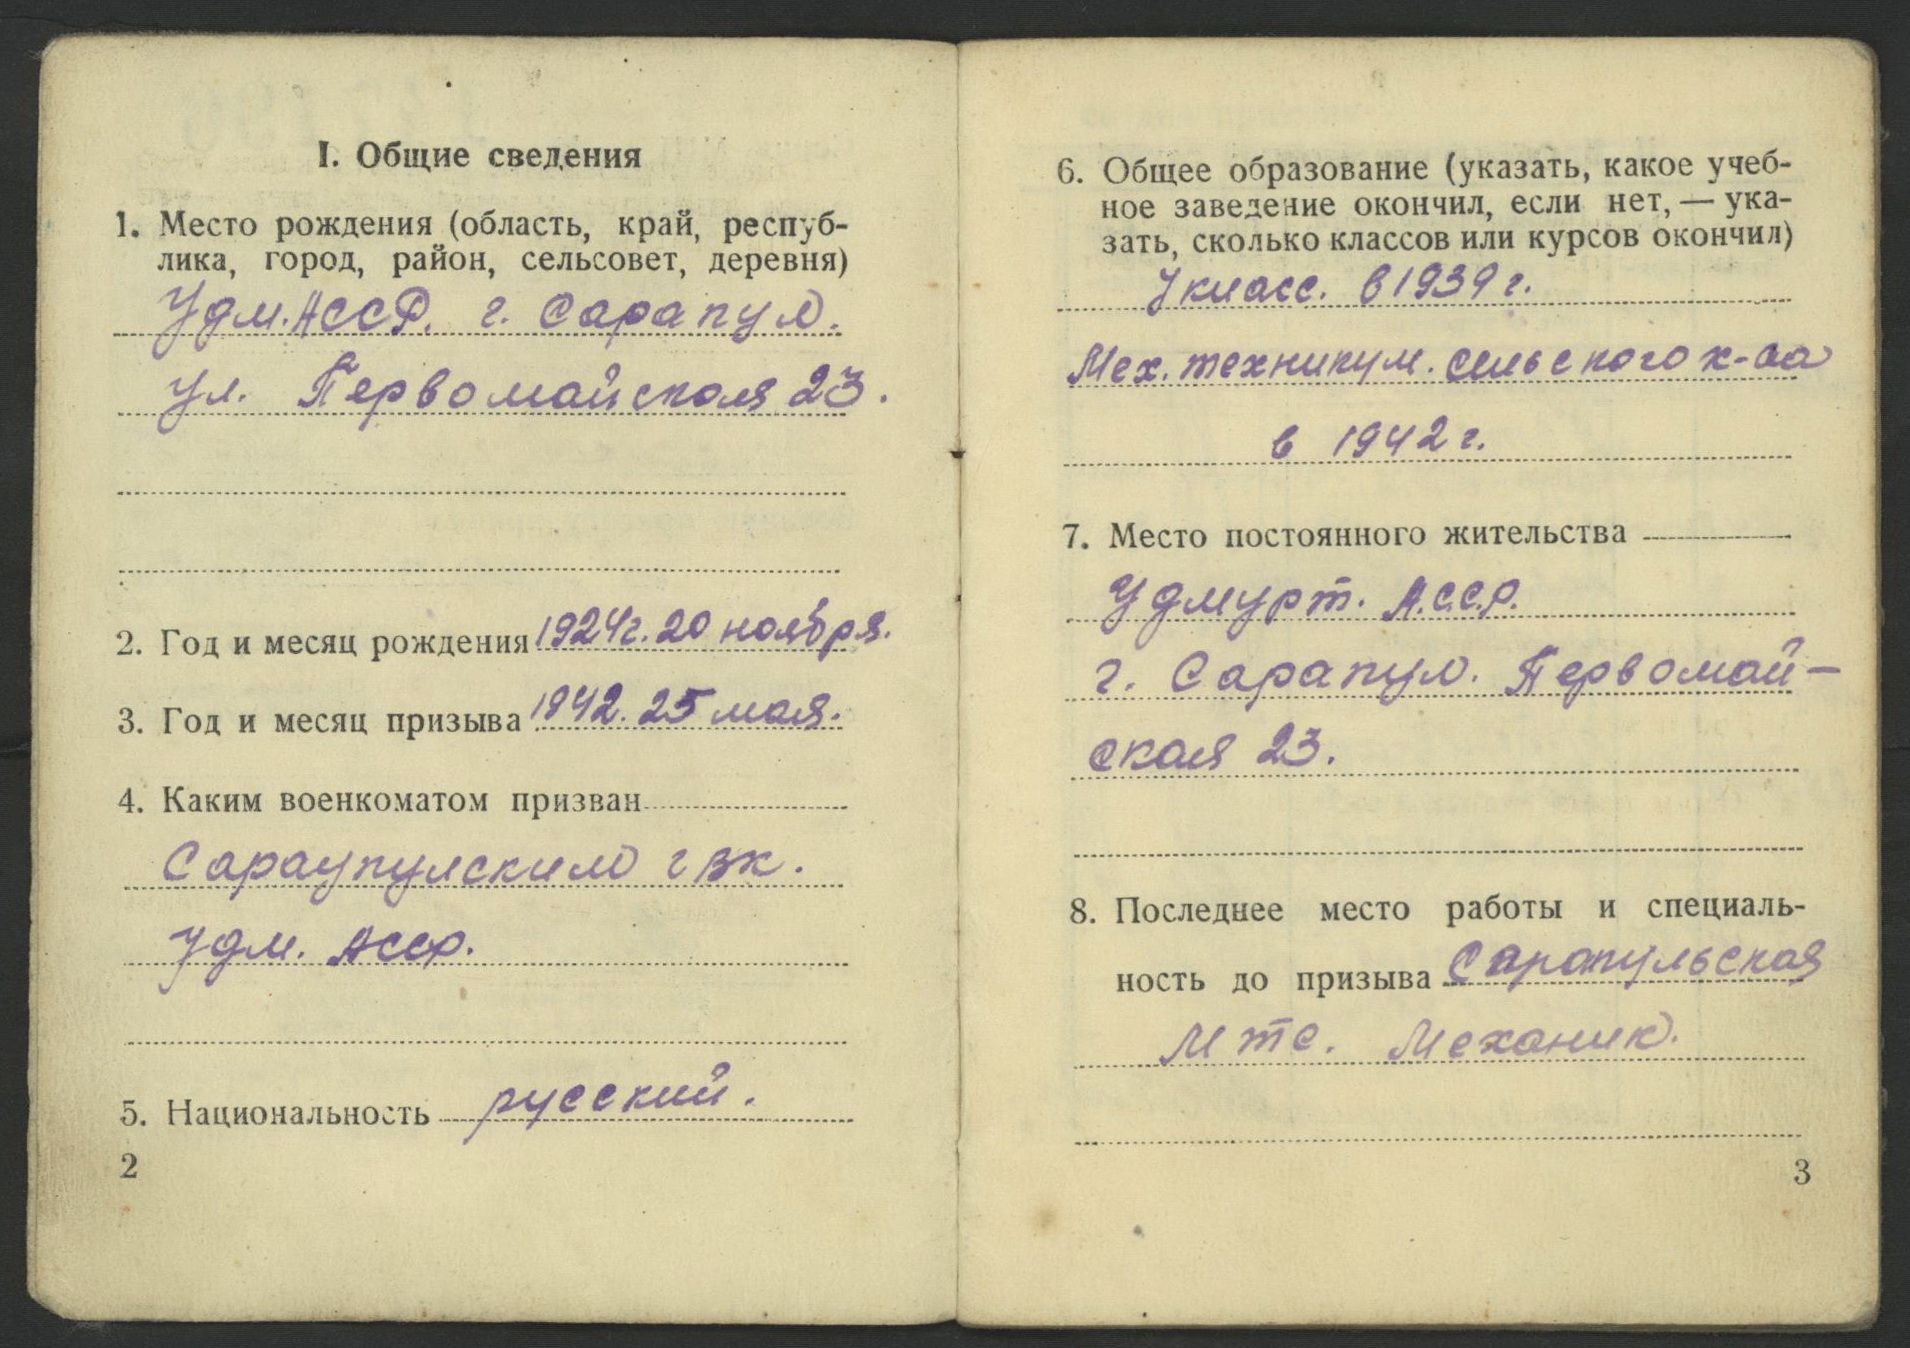 I. Общие сведения
1. Место рождения (область, край, респуб-
лика, город, район, сельсовет, деревня)
Удм. АССР. г. Сарапул.
ул. Первомайская 23.
2. Год и месяц рождения 1924г. 20 ноября.
3. Год и месяц призыва 1942. 25 мая.
4. Каким военкоматом призван
Сараупулским гвк.
Удм. АССР.
5. Национальность русский.
2
6. Общее образование (указать, какое учеб-
ное заведение окончил, если нет, — ука-
зать, сколько классов или курсов окончил)
7 класс. в 1939 г.
Мех. техникум. сельского х-ва
в 1942 г.
7. Место постоянного жительства
Удмурт. А.С.С.Р.
г. Сарапул. Первомай-
ская 23.
8. Последнее место работы и специаль-
ность до призыва Сарапульская
МТС. Механик.
3